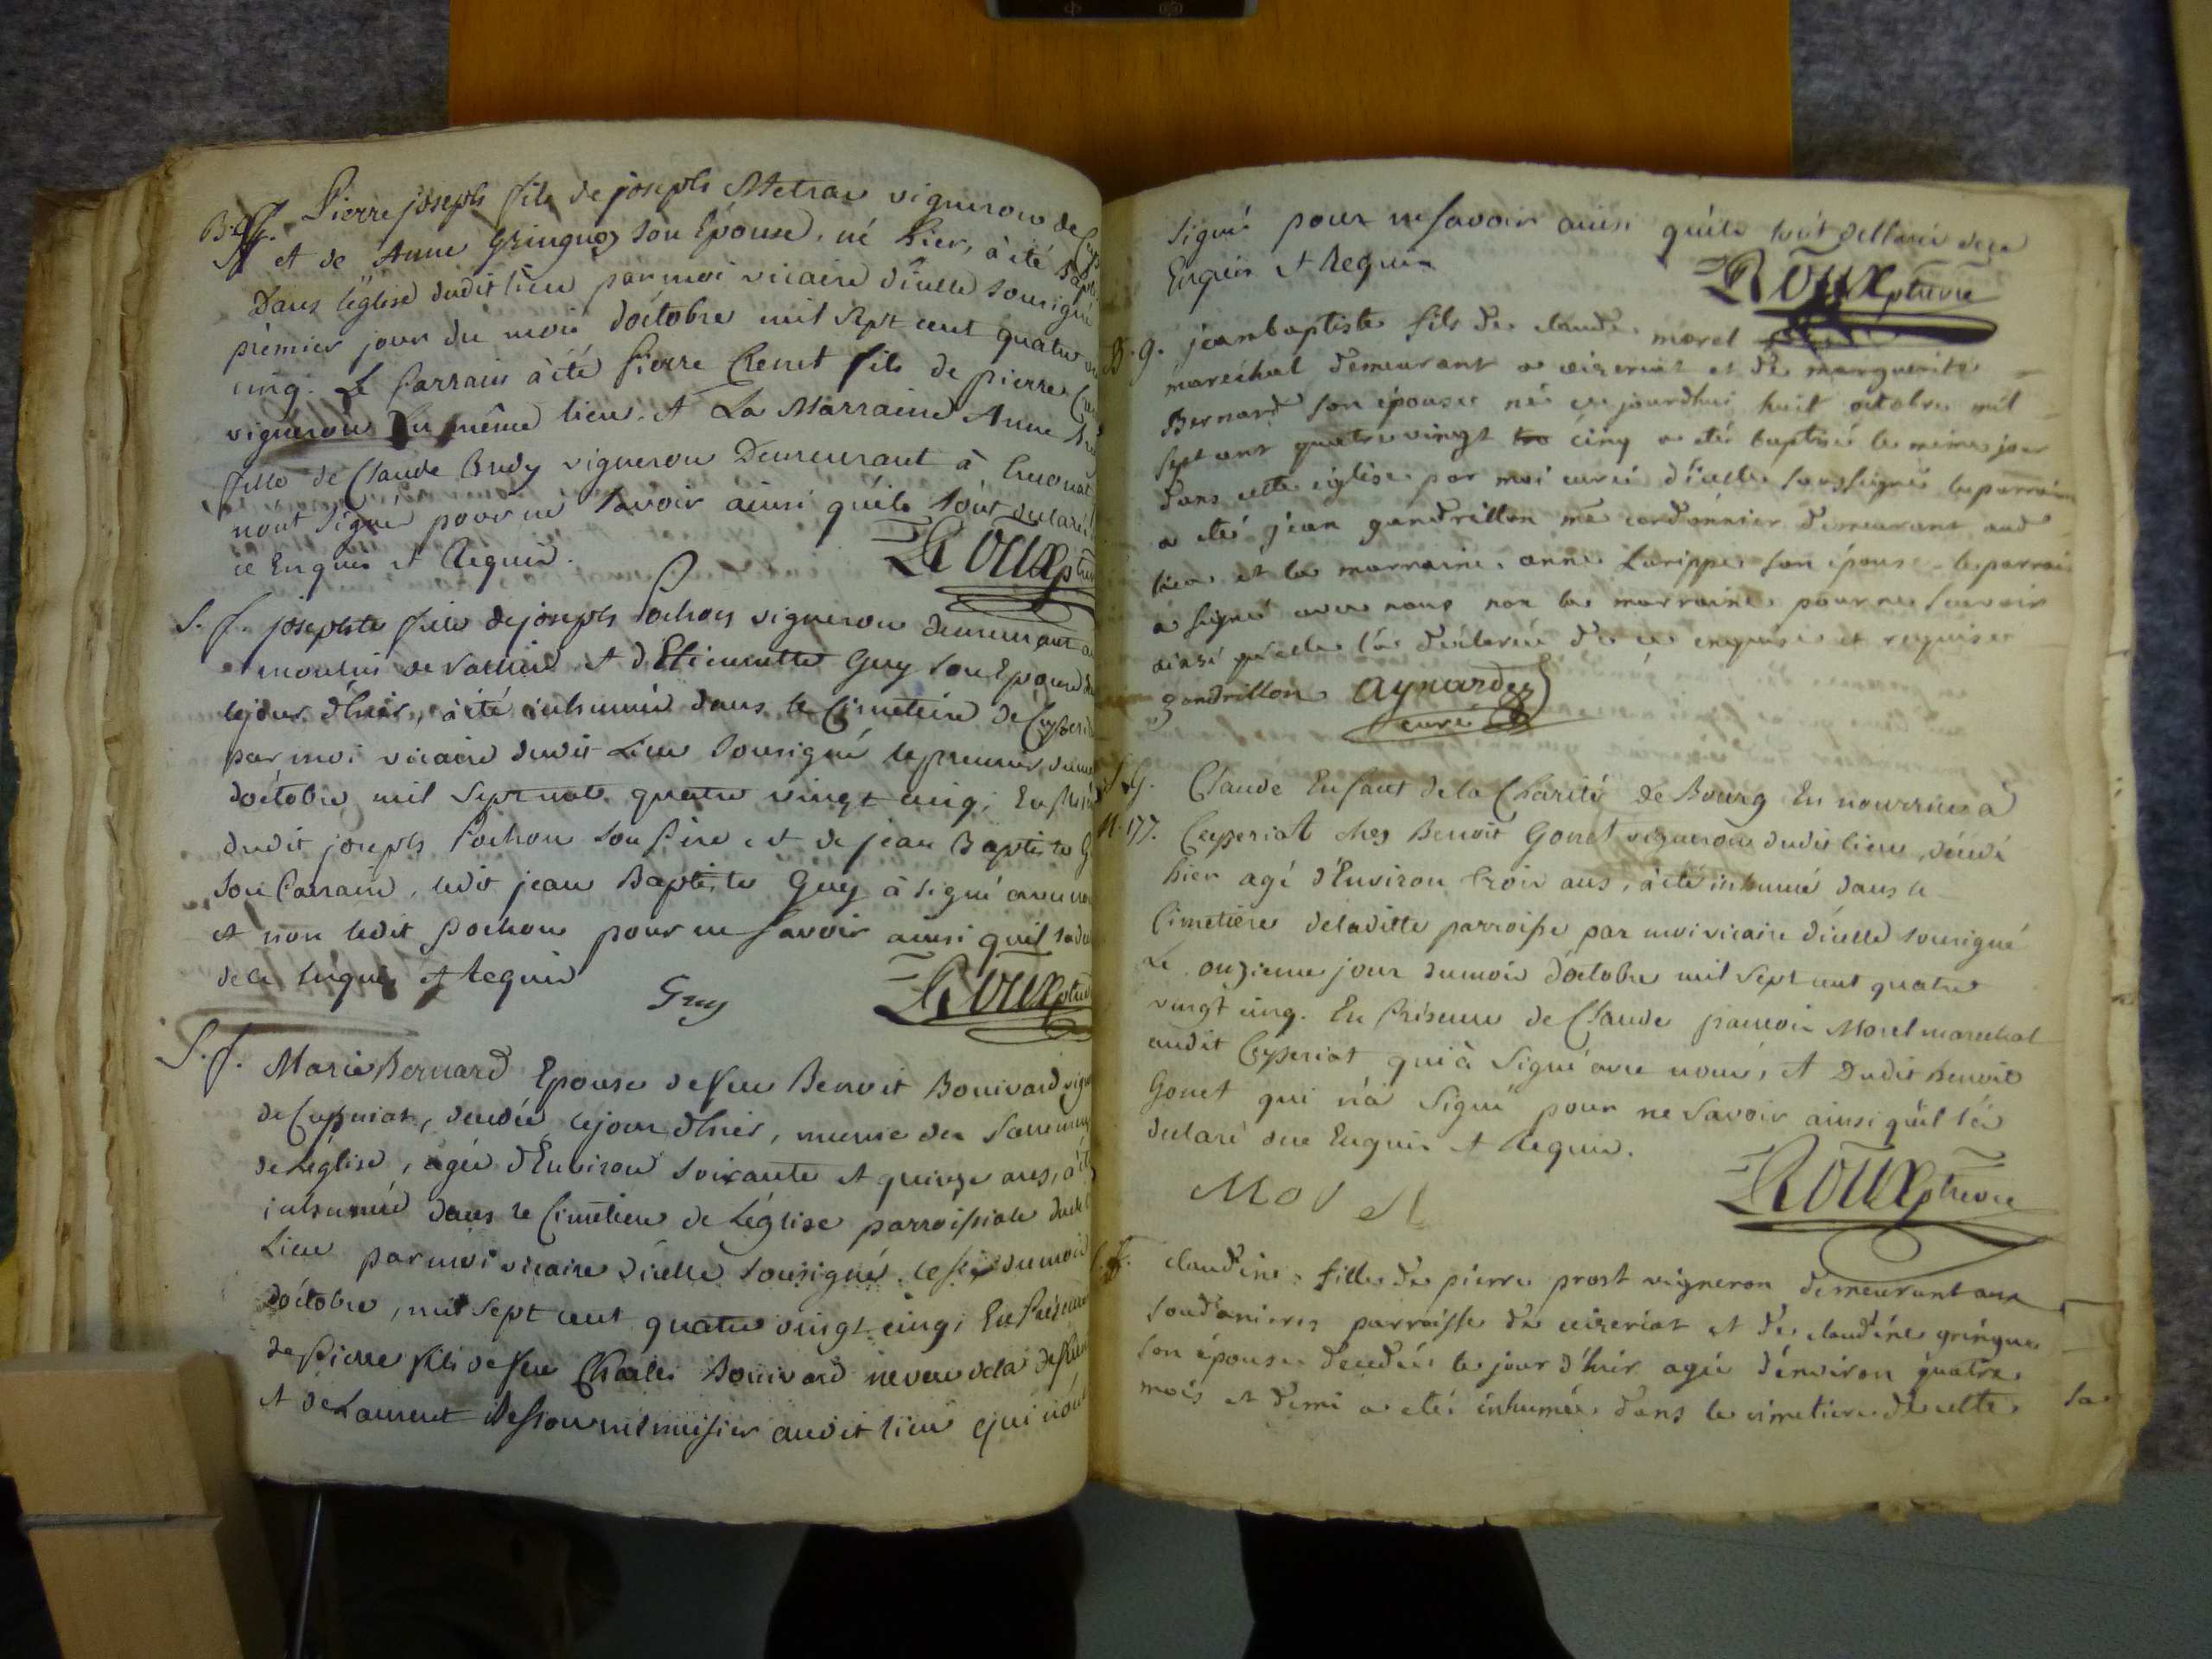 B. G. Pierre joseph fils de joseph Metra vigneron de
et de Anne Gringnoz son Epouse, né hier, à été
Dans l'église dudit lieu par moi vicaire d'icelle sousigné
premier jour du mois d'octobre mil sept cent quatre
cinq. Le Parrain à été Pierre Chenet fils de pierre
vigneron du même lieu. et La Marraine Anne
fille de Claude vigneron Demeurant à
nont Signé pour ne Savoir ainsi qu'ils sont declaré
ce Enquis et Requis. Roux ptre
S. f. josephte fille de joseph Pochon vigneron demeurant au
moulin de et d'Etiennette Guy son Epouse
le jour d'hier, à été inhumée dans le Cimetiere de
par moi vicaire dudit Lieu Sousigné le premier du
d'octobre mil Sept cent quatre vingt cinq, En
dudit joseph Pochon Son Pere et de jean Baptiste
Son Parrain, ledit jean Baptiste Guy à signé avec
et non ledit pochon pour ne savoir ainsi quil
de ce Enquis et Requis Guy Roux ptre
S. f. Marie Bernard Epouse de feu Benoit Bouivard
de Ceyzeriat, decedée le jour d'hier, munie des
de L'église, agée d'Environ soixante et quinze ans, à
inhumée dans le Cimetiere de L'église parroissiale
Lieu par moi vicaire d'icelle sousigné le six du mois
d'octobre, mil sept cent quatre vingt cinq, En Présence
de Pierre fils de feu Charles Bouivard neveu de la
et de Laurent menuisier audit lieu qui
signé pour ne savoir ainsi qu'ils sont declaré de ce
Enquis et Requis Roux ptrevre
B. g. jean baptiste fils de claude morel
marechal demeurant a ceizeriat et de marguerite
Bernard son épouse né ce jourdhui huit octobre mil
sept cent quatre vingt cinq a été baptisé le même jour
dans cette église par moi curé d'icelle soussigné le parrain
a été jean gandrillon me cordonnier demeurant aud
lieu et la marraine anne Larippe son épouse le parrain
a signé avec nous non la marraine pour ne savoir
ainsi qu'elle l'a déclarée de ce enquise et requise
gandrillon Aynardez
curé
S. G. Claude Enfant de la Charité de Bourg En nourrice à
N. 177. Ceyzeriat chez Benoit Gonet vigneron dudit lieu, décédé
hier agé d'Environ trois ans, à été inhumé dans le
Cimetiere de laditte parroisse par moi vicaire d'icelle sousigné
Le onzieme jour du mois d'octobre mil sept cent quatre
vingt cinq. En Présence de Claude Morel marechal
audit Ceyzeriat qui à Signé avec nous, et Dudit benoit
Gonet qui n'a Signé pour ne savoir ainsi qu'il l'a
declaré de ce Enquis et Requis.
Morel Roux ptrevre
S. f. claudine fille de pierre prost vigneron demeurant aux
soudanieres parroisse de ceizeriat et de claudine
son épouse decedée le jour d'hier agée d'environ quatre
mois et demi a eté inhumée dans le cimetiere de cette